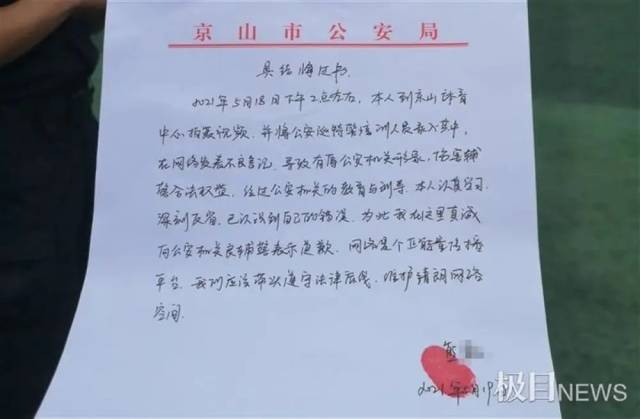 京山市公安局
具结悔过书
2021年5月18日下午2点左右，本人到京山体育
中心拍摄视频，并将公安巡特警培训人员录入其中，
在网络发表不良言论，导致有损公安机关形象，伤害辅
警合法权益，经过公安机关的教育与训导，本人认真学习
深刻反省，已认识到自己的错误，为此我在这里真诚
向公安机关民辅警表示道歉，网络是个正能量传播
平台，我们应该带头遵守法律底线，维护清朗网络
空间。
熊
2021年5月19日
极目NEWS